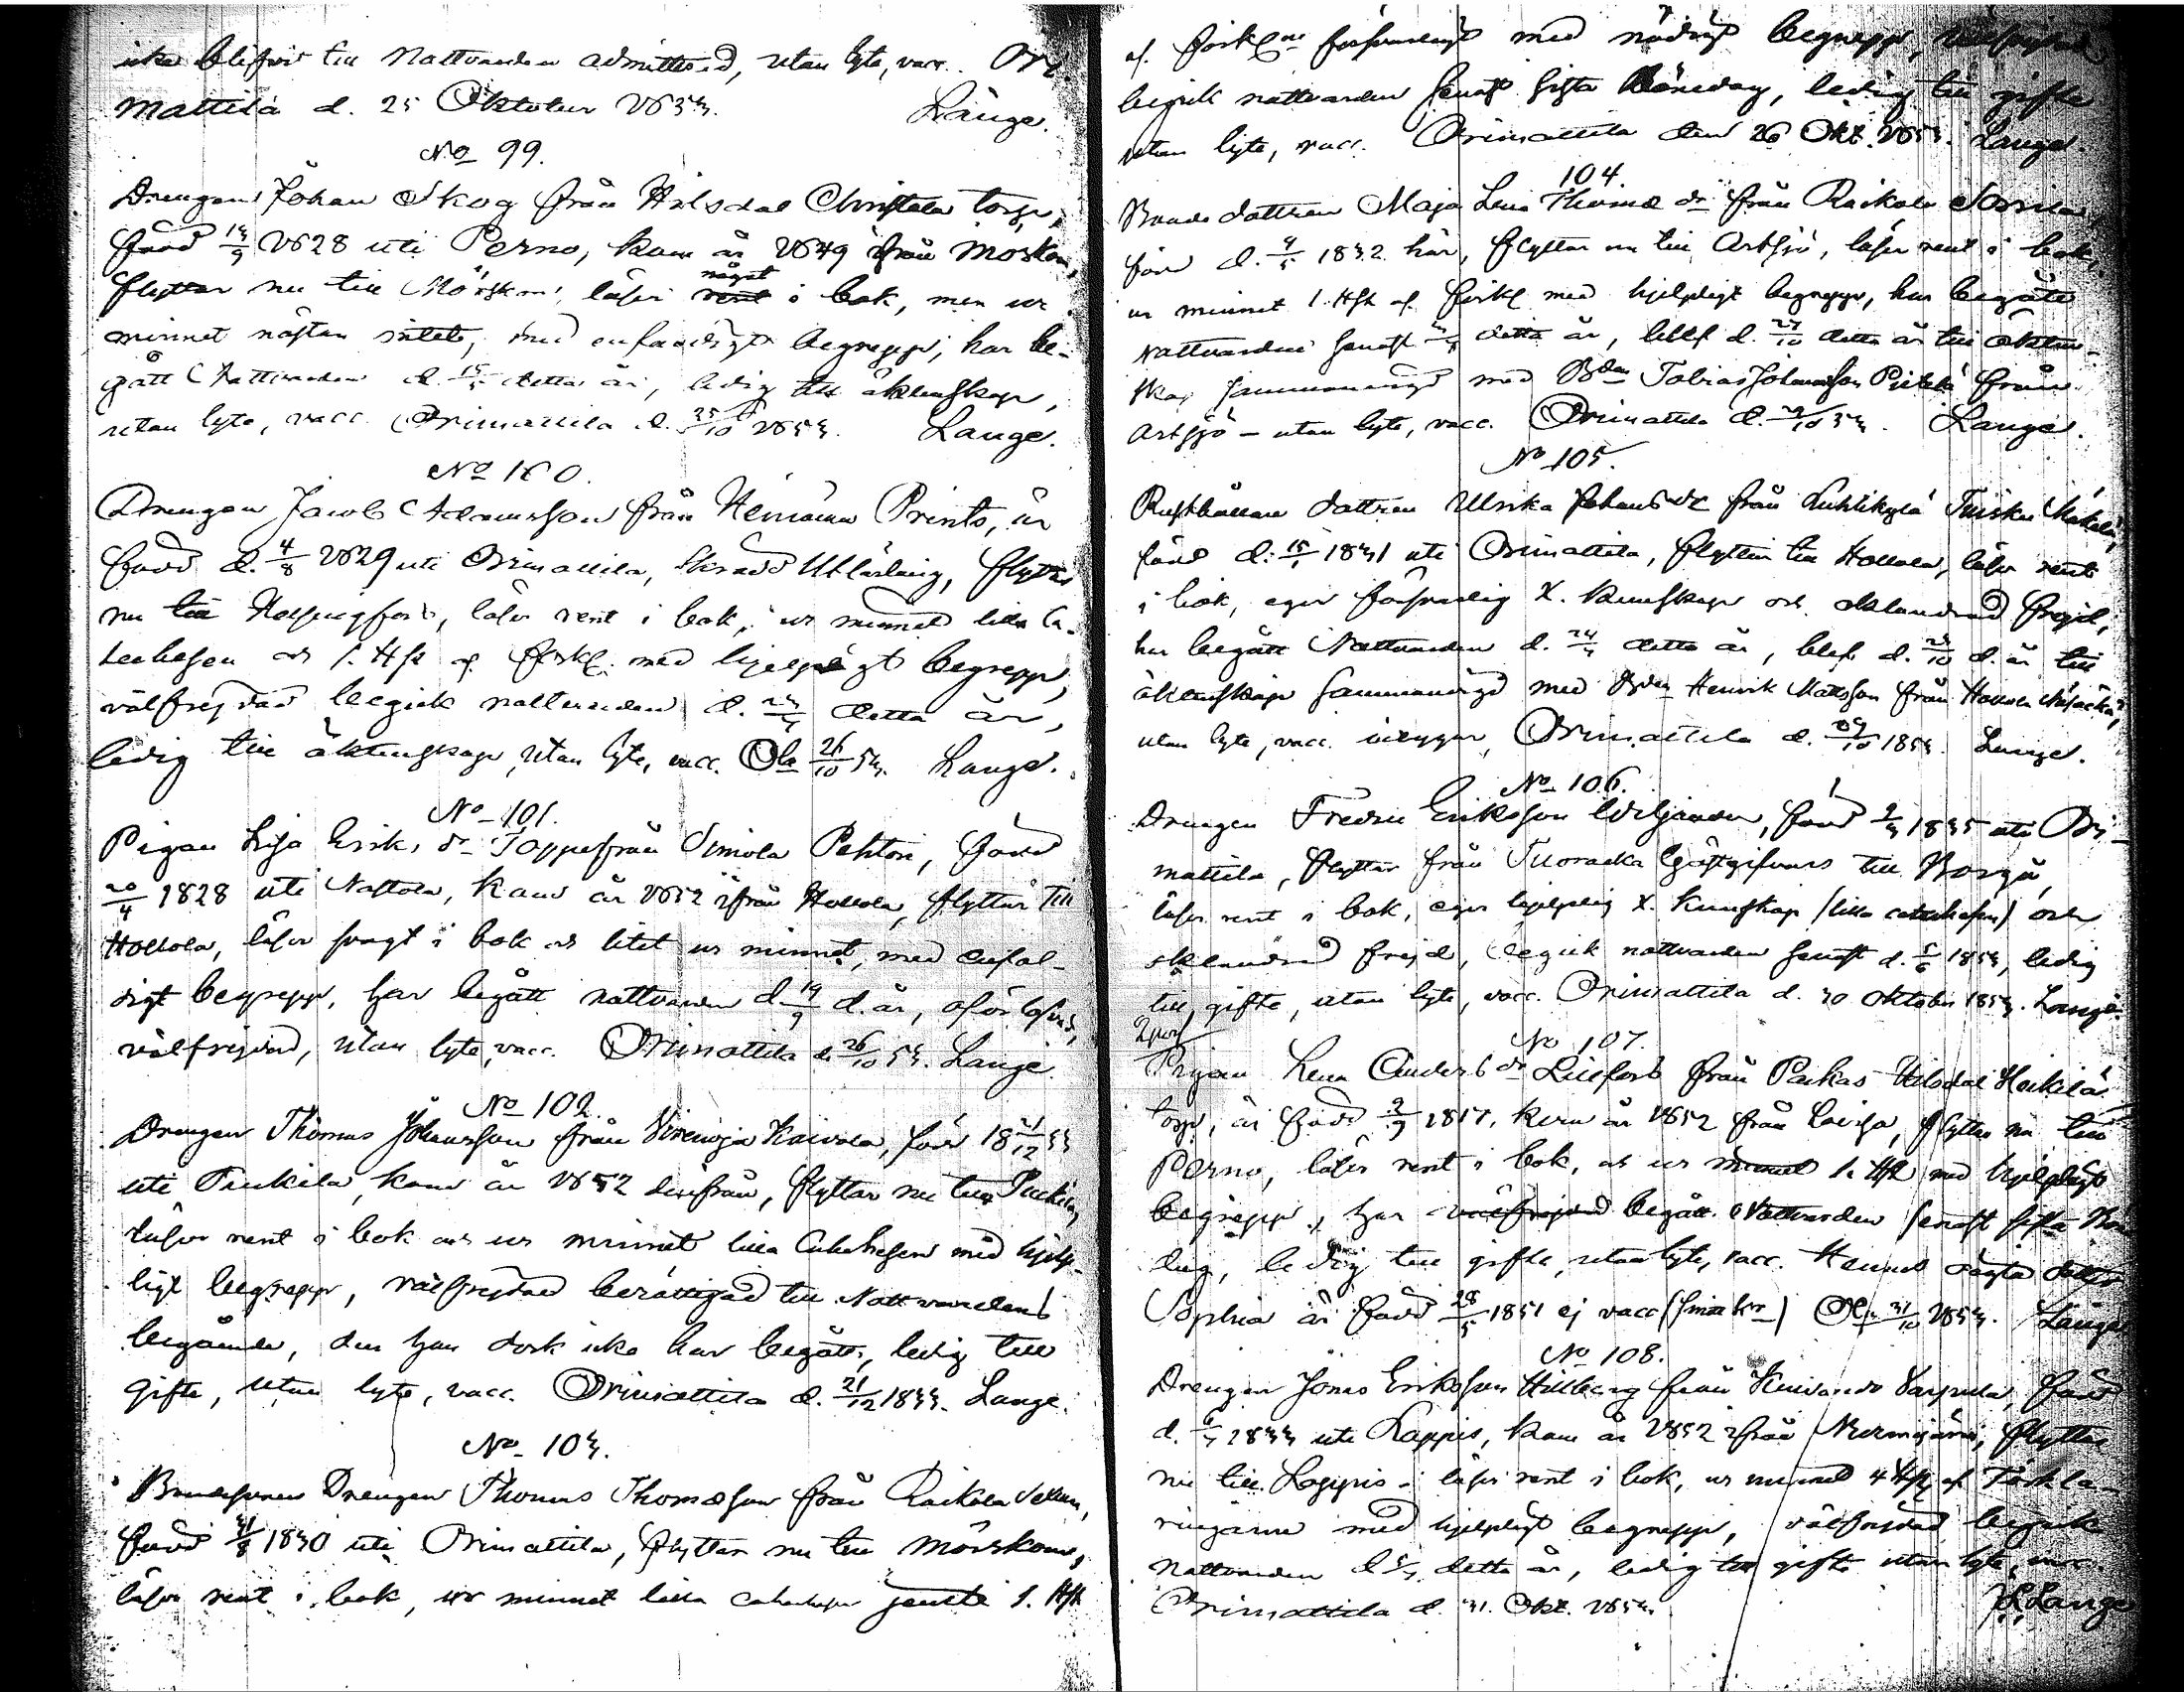 icke blifvit till Nattvarden admitterad, utan lyte, vacc. Ori-
mattila d. 25 Oktober 1853. Lange.
No 99.
Drengen Johan Skog från Hilsdal Christela torp,
född 13/9 1828 uti Perno, kom år 1849 ifrån Mörskom,
flyttar nu till Mörskom, läser något i bok, men ur
minnet nästan intet, med enfaldigt begrepp, har be-
gått Nattvarden d. 15/5 detta år, ledig till äktenskap,
utan lyte, vacc. Orimattila d. 25/10 1853. Lange.
No 100.
Drengen Jacob Adamsson från Heinämaa Prints, är
född d. 4/8 1829 uti Orimattila, Skrädd. Utlärling, flyttar
nu till Helsingfors, läser rent i bok, ur minnet lilla Ca-
techesen och 1. Hst af förkl. med hjelpligt begrepp,
välfrejdad begick nattvarden d. detta år,
ledig till äktenskap, utan lyte, vacc. Ola 26/10 53. Lange.
No 101.
Pigan Lisa Eriks dr Toppe från Simola Pehtori, född
20/4 1828 uti Nastola, kom år 1852 ifrån Hollola, flyttar till
Hollola, läser svagt i bok och litet ur minnet, med enfal-
digt begrepp, har begått nattvarden d. 19/9 d. år, oförlofvad,
välfrejdad, utan lyte, vacc. Orimattila d. 26/10 53. Lange.
No 102.
Drengen Thomas Johansson från Virenoja Kaivola, född 18 21/12 33
uti Pukkila, kom år 1852 derifrån, flyttar nu till Pukkila,
läser rent i bok och ur minnet lilla Catechesen med hjelp-
ligt begrepp, välfrejdad berättigad till Nattvardens
begående, den han dock icke har begått, ledig till
gifte, utan lyte, vacc. Orimattila d. 21/12 1833. Lange.
No 103.
Bondesonen Drengen Thomas Thomasson från Raikala
född 31/8 1830 uti Orimattila, flyttar nu till Mörskom,
läser rent i bok, ur minnet lilla catechesen jemte 1. Hst
af förkl:ne försvarligt med nödigt begrepp, välfrejdad
begick nattvarden senast sista Böndag, ledig till gifte
utan lyte, vacc. Orimattila den 26 Okt. 1853. Lange.
104.
Bonde dottren Maja Lena Thomæ dr från Raikala
född d. 4/5 1832 här, flyttar nu till Artsjö, läser rent i bok,
ur minnet 1. Hst af förkl med hjelpligt begrepp, har begått
nattvarden senast detta år, blef d. 27/10 detta år till äkten-
skap sammanvigd med Bden Tobias Johansson från
Artsjö – utan lyte, vacc. Orimattila d. 29/10 53. Lange.
No 105.
Rusthållare dottren Ulrika Johans dr från Luhtikylä
född d. 15/1 1831 uti Orimattila, flyttar till Hollola, läser rent
i bok, eger försvarlig X. kunskap och oklandrad frejd,
har begått Nattvarden d. 24/4 detta år, blef d. d. år till
äktenskap sammanvigd med Bden Henrik Mattsson från Hollola
utan lyte, vacc. Orimattila d. 29/10 1853. Lange.
No 106.
Drengen Fredric Eriksson Wiljander, född 9/3 1835 uti Ori-
mattila, flyttar från Tuorakka Gästgifveri till Borgå,
läser rent i bok, eger hjelplig X. kunskap (lilla catechesen) och
oklandrad frejd, begick nattvarden senast d. 5/6 1853, ledig
till gifte, utan lyte, vacc. Orimattila d. 30 Oktober 1853. Lange.
No 107.
2 pers
Pigan Lena Anders dr Lillfors från Pakas Hilsdal Heikilä
torp, är född 2/9 1817, kom år 1852 från Lovisa, flyttar nu till
Perno, läser rent i bok, och ur minnet 1. Hst med hjelpligt
begrepp, har välfrejdad begått Nattvarden senast sista Bön-
dag, ledig till gifte, utan lyte, vacc. Hennes oägta dotter
Sophia är född 28/5 1851 ej vacc (smittkr) Ola 31/10 1853. Lange
No 108.
Drengen Jonas Eriksson Hillberg från Kuivando Varpula, född
d. 1833 uti Loppis, kom år 1852 ifrån Nurmijärvi, flyttar
nu till Loppis – läser rent i bok, ur minnet 4 Hst af Förkla-
ringarne med hjelpligt begrepp, välfrejdad begick
nattvarden detta år, ledig till gifte utan lyte, vacc.
Orimattila d. 31. Okt. 1853. Lange